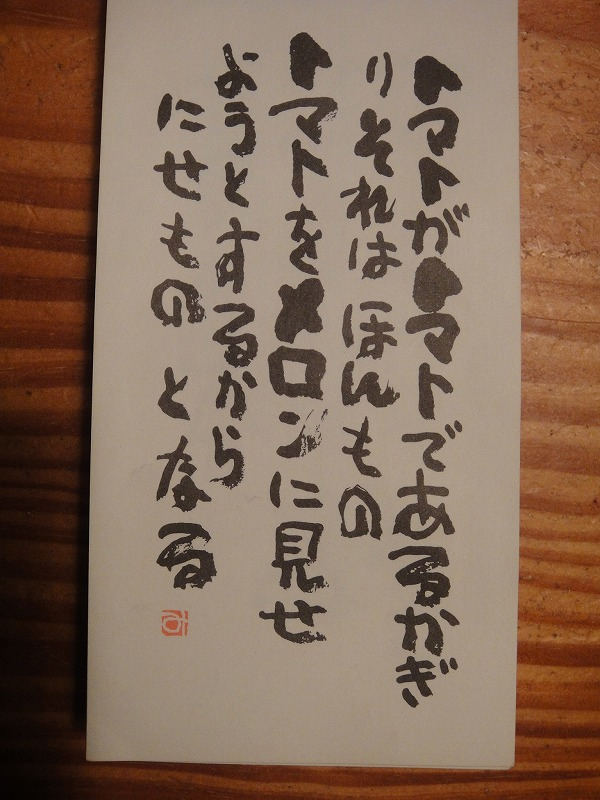 トマトがトマトであるかぎ
りそれはほんもの
トマトをメロンに見せ
ようとするから
にせものとなる
み